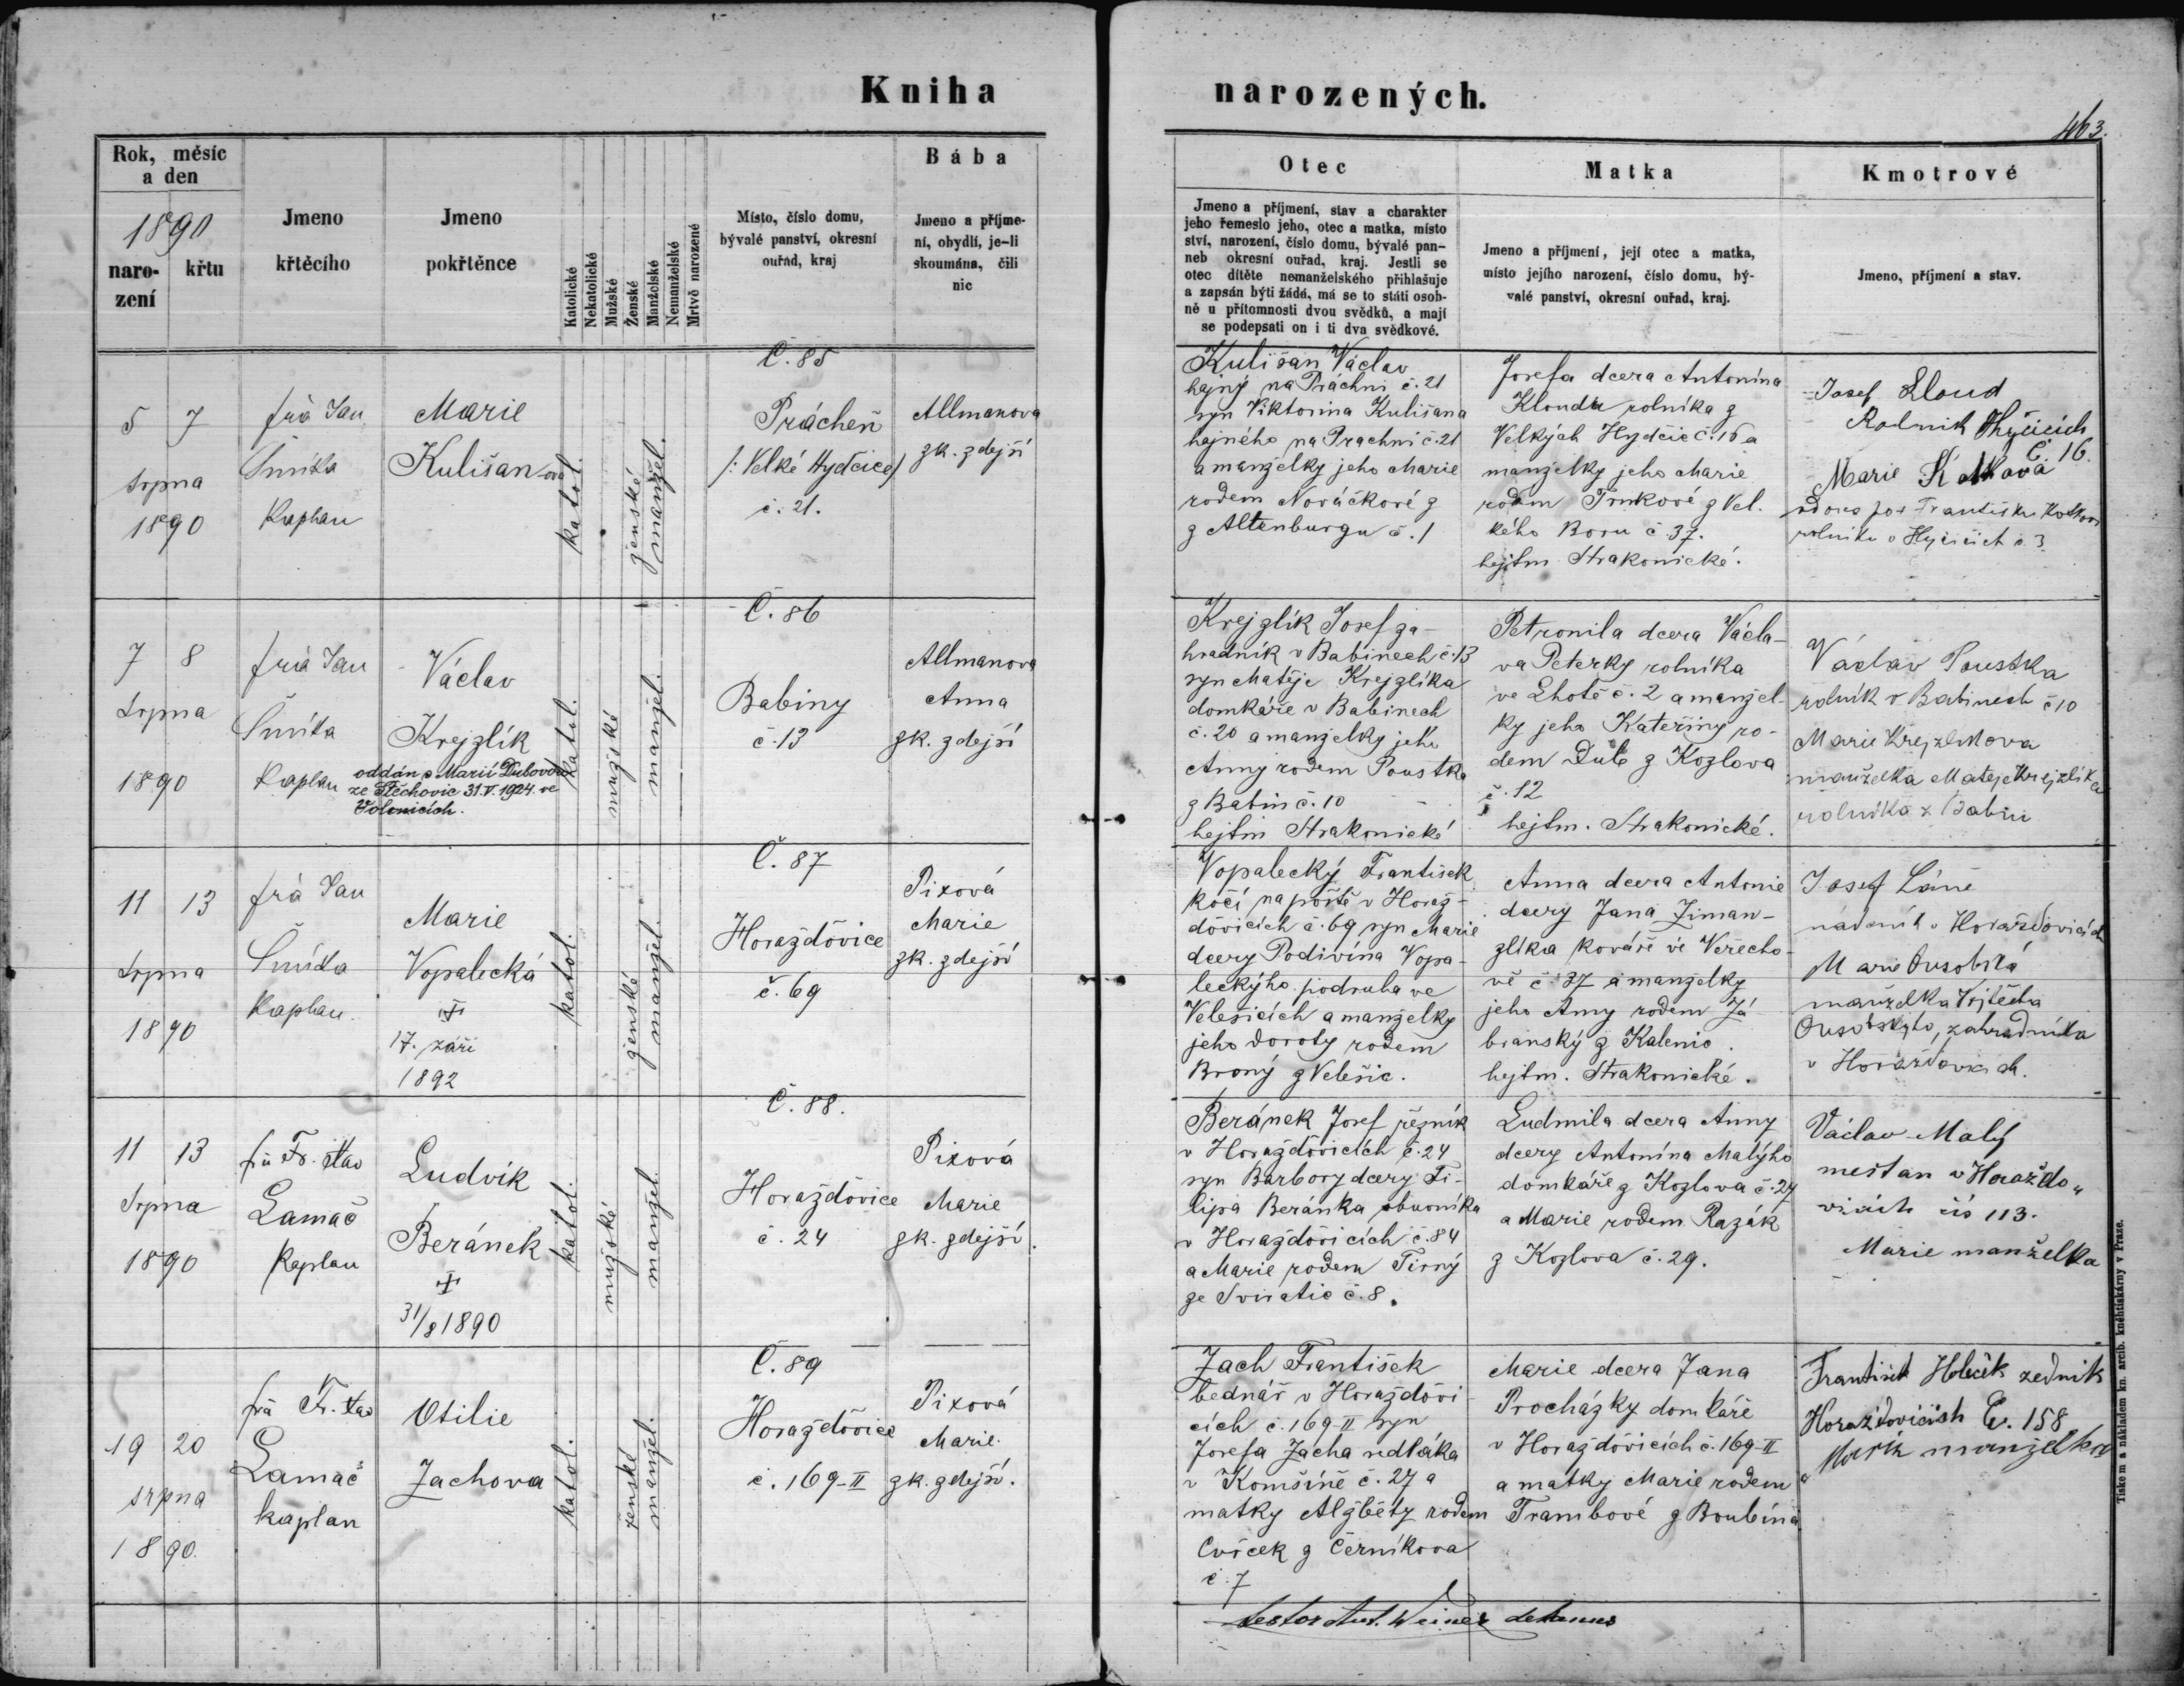 Kniha narozených.
463.
Rok, měsíc
a den
1890
naro-
zení
křtu
Jmeno
křtěcího
Jmeno
pokřtěnce
Katolické
Nekatolické
Mužské
Ženské
Manželské
Nemanželské
Mrtvě narozené
Místo, číslo domu,
bývalé panství, okresní
ouřad, kraj
Bába
Jmeno a příjme-
ní, obydlí, je-li
skoumána, čili
nic
Otec
Jmeno a příjmení, stav a charakter
jeho řemeslo jeho, otec a matka, místo
ství, narození, číslo domu, bývalé pan-
neb okresní ouřad, kraj. Jestli se
otec dítěte nemanželského přihlašuje
a zapsán býti žádá, má se to státi osob-
ně u přítomnosti dvou svědků, a mají
se podepsati on i ti dva svědkové.
Matka
Jmeno a příjmení, její otec a matka,
místo jejího narození, číslo domu, bý-
valé panství, okresní ouřad, kraj.
Kmotrové
Jmeno, příjmení a stav.
5 7
srpna
1890
frà Jan
Šmída
Kaplan
Marie
Kulišan-ova
katol.
ženské
manžel.
Č. 85
Prácheň
/: Velké Hydčice/
č. 21.
Allmanova
zk. zdejší
Kulišan Václav
hajný na Práchni č. 21
syn Viktorina Kulišana
hajného na Prachni č. 21
a manželky jeho Marie
rodem Nováčkové z
z Altenburgu č. 1
Josefa dcera Antonína
Klouda rolníka z
Velkých Hydčic č. 16 a
manželky jeho Marie
rodem Trnkové z Vel.
kého Boru č. 37.
hejtm Strakonické.
Josef Kloud
Rolnik Hyčicich
č. 16.
Marie Kotkova
vdova po Františku
rolniku v Hyčicich č. 3
7 8
Srpna
1890
frà Jan
Šmída
Kaplan
Václav
Krejzlík
oddán s Marií Dubovou
ze Těchovic 31.V.1924 ve
Volenicích.
katol.
mužské
manžel.
Č. 86
Babiny
č. 13
Allmanova
Anna
zk. zdejší
Krejzlík Josef za-
hradník v Babinech č. 13
syn Matěje Krejzlíka
domkáře v Babinech
č. 20 a manželky jeho
Anny rodem Poustka
z Babin č. 10
hejtm Strakonické
Petronila dcera Václa-
va Peterky rolníka
ve Lhotě č. 2 a manžel-
ky jeho Kateřiny ro-
dem Dub z Kozlova
č. 12
hejtm. Strakonické.
Václav Poustka
rolník v Babinech č 10
Marie Krejzlikova
manželka Matěje Krejzlíka
rolníka z Babin
11 13
Srpna
1890
frà Jan
Šmída
Kaplan.
Marie
Vopalecká
†
17. září
1892
katol.
ženské
manžel.
Č. 87
Horažďovice
č. 69
Pixová
Marie
zk. zdejší
Vopalecký František
kočí na poště v Horaž-
ďovicích č. 69 syn Marie
dcery Podivína Vopa-
leckýho podruha ve
Velešicích a manželky
jeho Doroty rodem
Brony z Velešic.
Anna dcera Antonie
dcery Jana Ziman-
zlíka kováře ve Veřecho-
vě č. 37 a manželky
jeho Anny rodem Zá
branský z Kalenic.
hejtm. Strakonické.
Josef Láně
v Horažďovicích
Marie Ousobská
manželka Vojtěcha
Ousobskýho, zahradníka
v Horažďovicích.
11 13
Srpna
1890
frà Fr. Stav
Lamač
Kaplan
Ludvík
Beránek
†
31/8 1890
katol.
mužské
manžel.
Č. 88.
Horažďovice
č. 24
Pixová
Marie
zk. zdejší.
Beránek Josef řezník
v Horažďovicích č. 24
syn Barbory dcery Fi-
lipa Beránka obuvníka
v Horažďovicích č. 84
a Marie rodem Tirný
ze Sviratic č. 8.
Ludmila dcera Anny
dcery Antonína Malýho
domkáře z Kozlova č. 27
a Marie rodem Razák
z Kozlova č. 29.
Václav Malý
mešťan v Horažďo„
vicích čís 113.
Marie manželka
19 20
srpna
1890.
frà Fr. Stav
Lamač
kaplan
Otilie
Zachova
katol.
ženské
manžel.
Č. 89
Horažďovice
č. 169-II
Pixová
Marie.
zk. zdejší.
Zach František
bednář v Horažďovi-
cích č. 169-II syn
Josefa Zacha sedláka
v Komšíně č. 27 a
matky Alžběty rodem
Cvíček z Černíkova
č. 7
Marie dcera Jana
Procházky domkáře
v Horažďovicích č. 169-II
a matky Marie rodem
Trambové z Boubína
František Holeček zedník
Horažďovicích Č. 158
a Marie manželka
Weiner dekanus
Tiskem a nákladem kn. arcib. kněhtiskárny v Praze.